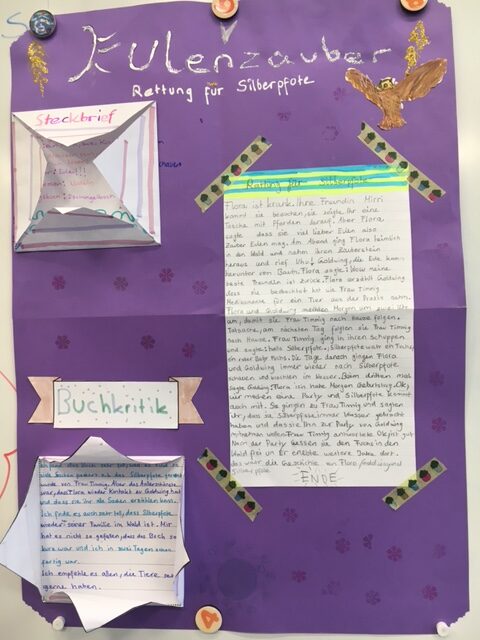 Eulenzauber
Rettung für Silberpfote
Steckbrief
Rettung für Silberpfote
Flora ist krank. Ihre Freundin Mirri
kommt sie besuchen, sie zeigte ihr eine
Tasche mit Pferden darauf. Aber Flora
sagte dass sie viel lieber Eulen also
Zauber Eulen mag. Am Abend ging Flora heimlich
in den Wald und nahm ihren Zauberstein
heraus und rief Uhu! Goldwing, die Eule kam
herunter von Baum. Flora sagte: Wow meine
beste Freundin ist zurück. Flora erzählt Goldwing
dass sie beobachtet hat wie Frau Timmig
Medikamente für ein Tier aus der Praxis nahm.
Flora und Goldwing machten Morgen um
um, damit sie Frau Timmig nach Hause folgen.
Tatsache, am nächsten Tag folgten sie Frau Timmig
nach Hause. Frau Timmig ging in ihren Schuppen
und sagte: hallo Silberpfote. Silberpfote war ein Fuchs,
ein Baby Fuchs. Die Tage danach gingen Flora
und Goldwing immer wieder nach Silberpfote
schauen und brachten im Wasser. Beim dritten mal
sagte Goldwing: Flora ich habe Morgen Geburtstag. Ok,
wir machen eine Party und Silberpfote kommt
auch mit. So gingen zu Frau Timmig und sagten
ihr, dass sie Silberpfote immer Wasser gebracht
haben und dass sie ihn zur Party von Goldwing
mitnahmen wollen. Frau Timmig antwortete: Ok ist gut.
Nach der Party liessen sie den Fuchs in den
Wald frei un Er erlebte weitere Tage dort.
das war die Geschichte von Flora/Goldwing und
Silberpfote
-ENDE-
Buchkritik
wurde von Frau Timmig. Aber das Aller
war, dass Flora wieder Kontakt zu Goldwing hat
und dass sie ihr alle Sachen erzählen kann.
Ich finde es auch sehr toll, dass Silberpfote
wieder seiner Familie im Wald ist. Mir
hat es nicht so gefallen, dass das Buch so
kurz war und ich in zwei Tagen schon
fertig war.
Ich empfehle es allen, die Tiere
gerne haben.